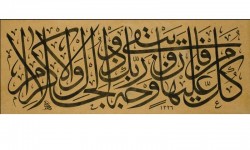 كل من عليها فان ويبقى وجه ربك ذو الجلال والإكرام
١٣٣٦